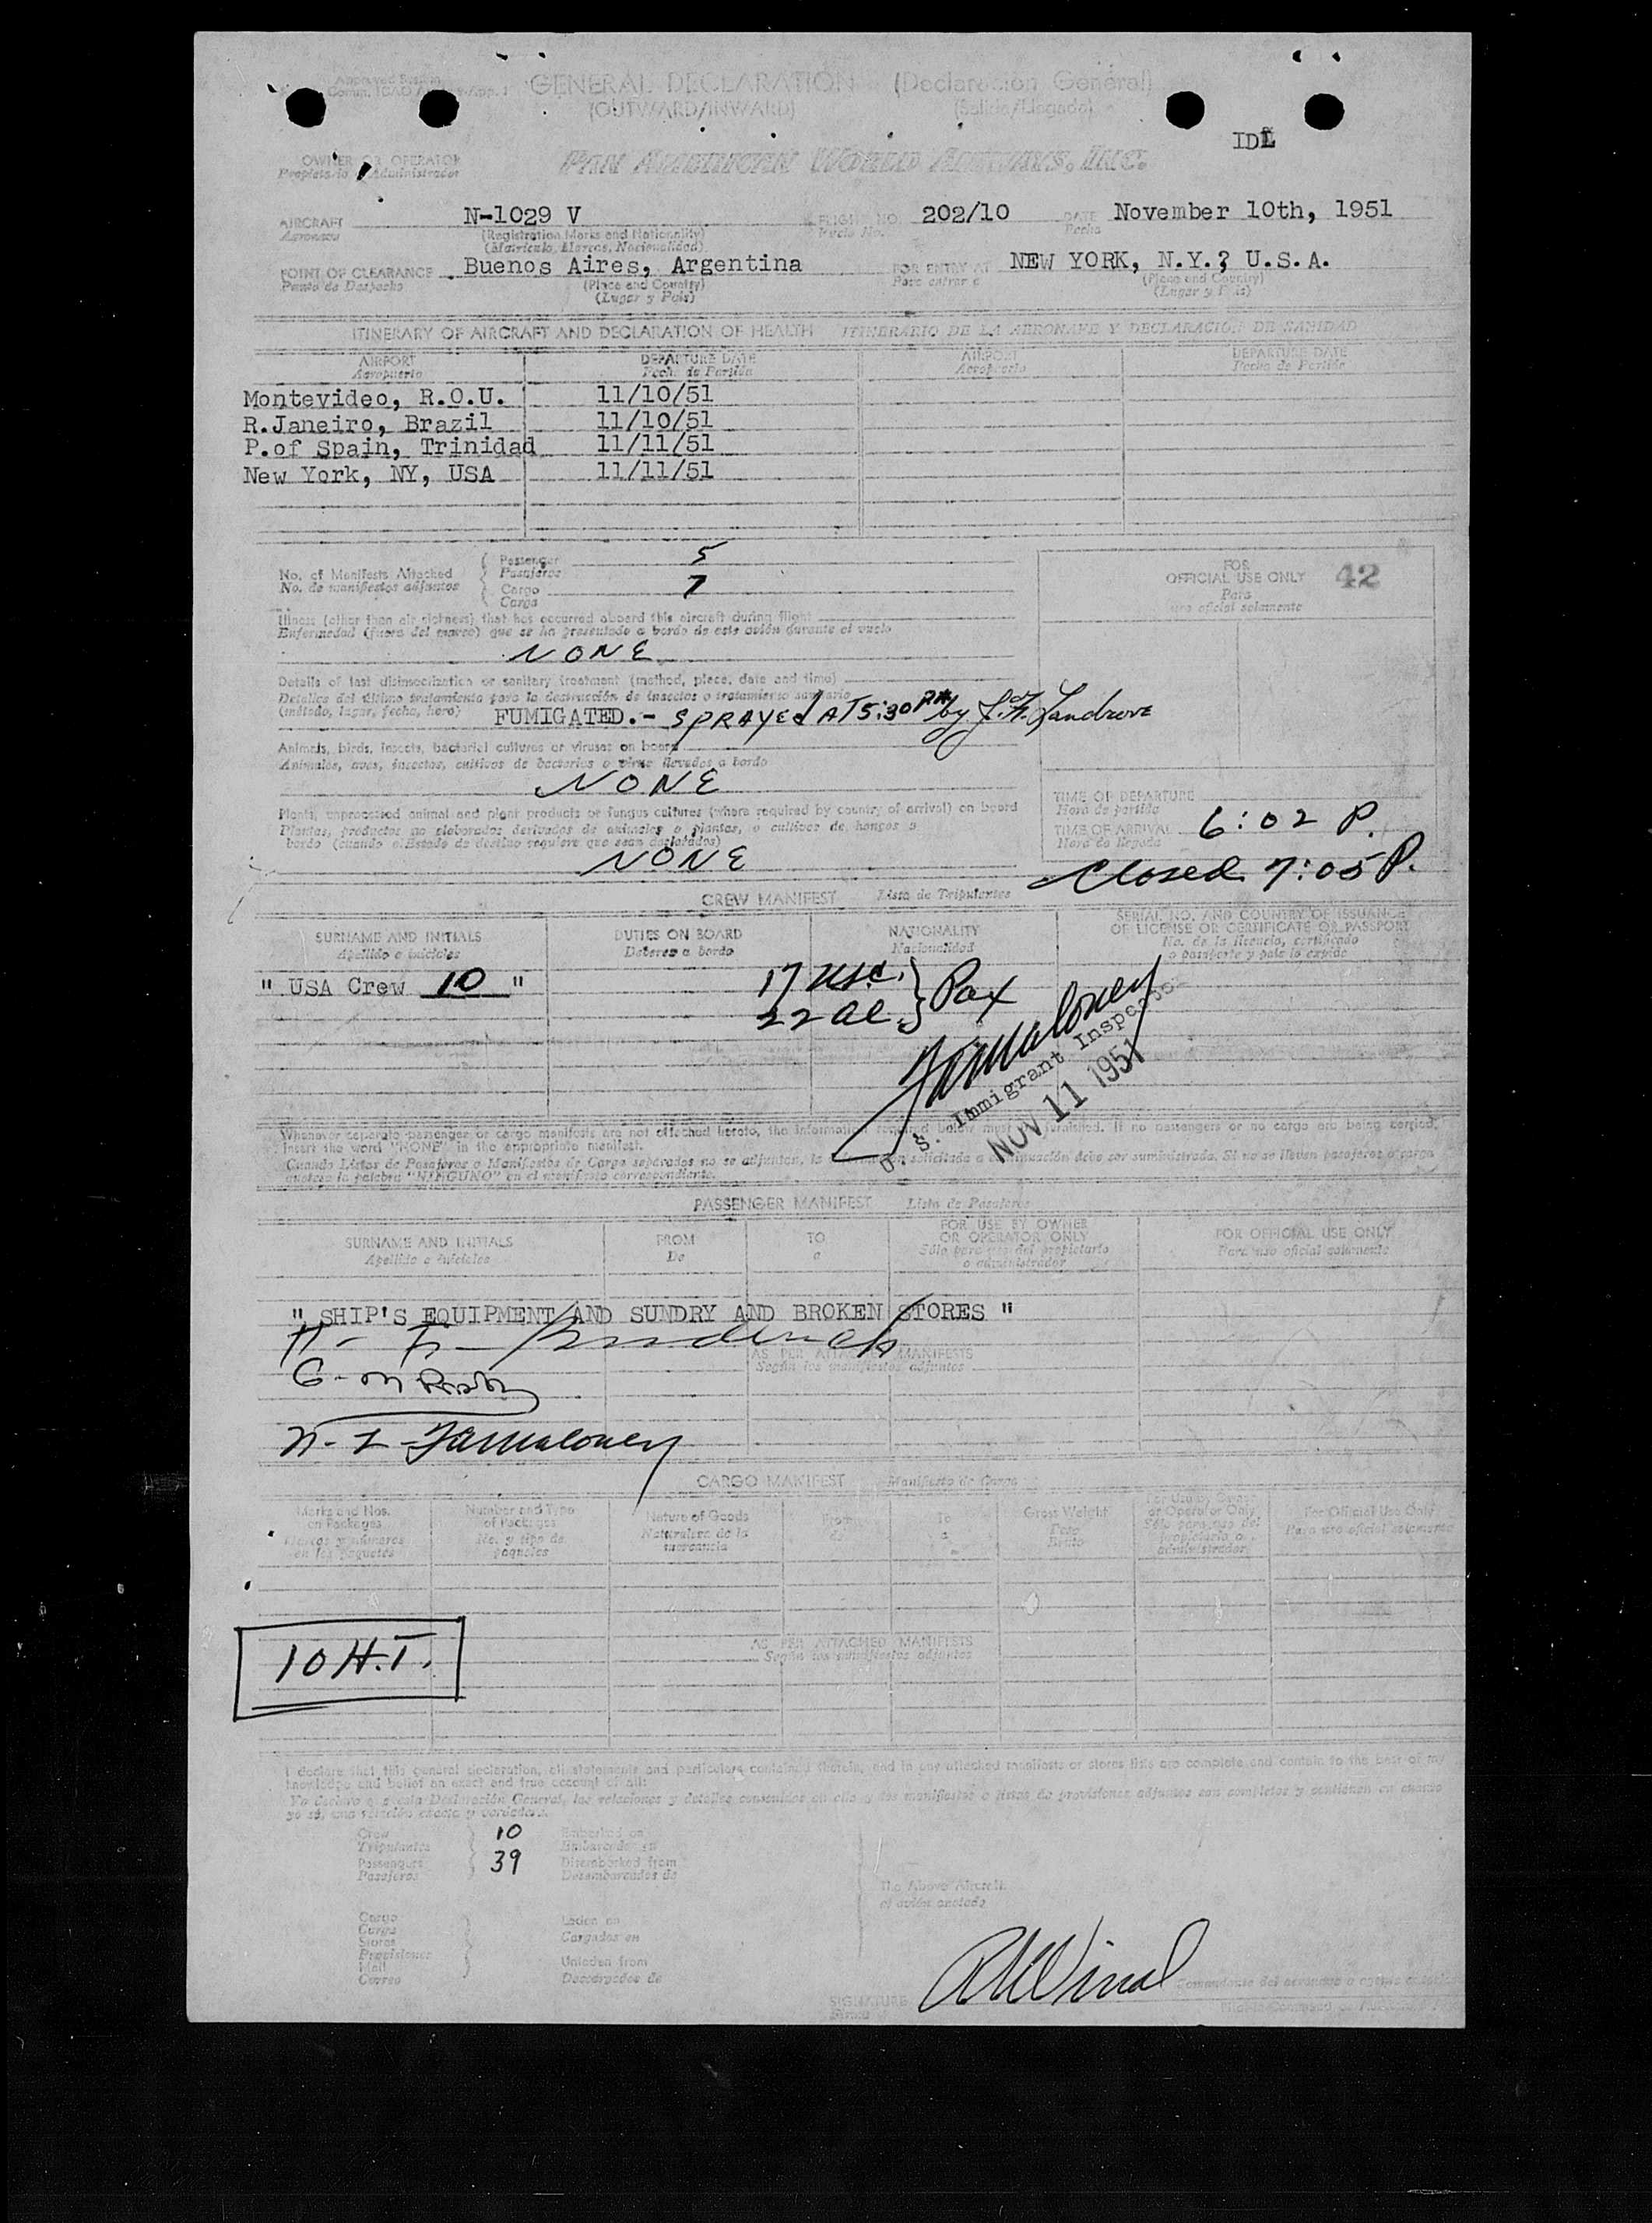 GENERAL DECLARATION (Declaración General)
(OUTWARD/INWARD) (Salida/Llegada)
OWNER OR OPERATOR
Propietario Administrador
PAN AMERICAN WORLD AIRWAYS, INC.
AIRCRAFT N-1029 V FLIGHT NO. 202/10 DATE November 10th, 1951
Aeronave (Registration Marks and Nationality) Vuelo No. Fecha
(Matrícula, Marcas, Nacionalidad)
POINT OF CLEARANCE Buenos Aires, Argentina FOR ENTRY AT NEW YORK, N.Y.? U.S.A.
Punto de Despacho (Place and Country) Para entrar a (Place and Country)
(Lugar y País) (Lugar y País)
ITINERARY OF AIRCRAFT AND DECLARATION OF HEALTH ITINERARIO DE LA AERONAVE Y DECLARACIÓN DE SANIDAD
AIRPORT DEPARTURE DATE AIRPORT DEPARTURE DATE
Aeropuerto Fecha de Partida Aeropuerto Fecha de Partida
Montevideo, R.O.U. 11/10/51
R.Janeiro, Brazil 11/10/51
P.of Spain, Trinidad 11/11/51
New York, NY, USA 11/11/51
No. of Manifests Attached Passenger 5
No. de manifiestos adjuntos Pasajeros
Cargo 7
Carga
FOR
OFFICIAL USE ONLY 42
Para
uso oficial solamente
Illness (other than air sickness) that has occurred aboard this aircraft during flight
Enfermedad (fuera del mareo) que se ha presentado a bordo de este avión durante el vuelo
NONE
Details of last disinsectization or sanitary treatment (method, place, date and time)
Detalles del último tratamiento para la destrucción de insectos o tratamiento sanitario
(método, lugar, fecha, hora) FUMIGATED.- SPRAYEd AT 5:30 PM by J.F. Landrove
Animals, birds, insects, bacterial cultures or viruses on board
Animales, aves, insectos, cultivos de bacterias o virus llevados a bordo
NONE
Plants, unprocessed animal and plant products or fungus cultures (where required by country of arrival) on board
Plantas, productos no elaborados derivados de animales o plantas, o cultivos de hongos a
bordo (cuando el Estado de destino requiere que sean declarados)
NONE
TIME OF DEPARTURE
Hora de partida
TIME OF ARRIVAL 6:02 P.
Hora de llegada
Closed 7:05 P.
CREW MANIFEST Lista de Tripulantes
SURNAME AND INITIALS DUTIES ON BOARD NATIONALITY SERIAL NO. AND COUNTRY OF ISSUANCE
OF LICENSE OR CERTIFICATE OR PASSPORT
Apellido e iniciales Deberes a bordo Nacionalidad No. de la licencia, certificado
o pasaporte y país lo expide
" USA Crew 10 "
17 usc. } Pax
22 al.
U. S. Immigrant Inspector
NOV 11 1951
Whenever separate passenger or cargo manifests are not attached hereto, the information required below must be furnished. If no passengers or no cargo are being carried,
insert the word "NONE" in the appropriate manifest.
Cuando Listas de Pasajeros o Manifiestos de Carga separados no se adjuntan, la información solicitada a continuación debe ser suministrada. Si no se llevan pasajeros o carga
anótese la palabra "NINGUNO" en el manifiesto correspondiente.
PASSENGER MANIFEST Lista de Pasajeros
SURNAME AND INITIALS FROM TO FOR USE BY OWNER OR OPERATOR ONLY FOR OFFICIAL USE ONLY
Apellido e iniciales De a Sólo para uso del propietario o administrador Para uso oficial solamente
" SHIP'S EQUIPMENT AND SUNDRY AND BROKEN STORES "
AS PER ATTACHED MANIFESTS
Según los manifiestos adjuntos
CARGO MANIFEST Manifiesto de Carga
Marks and Nos. on Packages Number and Type of Packages Nature of Goods From To Gross Weight For Use by Owner or Operator Only For Official Use Only
Marcas y números en los paquetes No. y tipo de paquetes Naturaleza de la mercancía de a Peso Bruto Sólo para uso del propietario o administrador Para uso oficial solamente
10 H.T.
AS PER ATTACHED MANIFESTS
Según los manifiestos adjuntos
I declare that this general declaration, all statements and particulars contained therein, and in any attached manifests or stores lists are complete and contain to the best of my
knowledge and belief an exact and true account of all:
Crew 10 Embarked on
Tripulantes Embarcados en
Passengers 39 Disembarked from
Pasajeros Desembarcados de
The Above Aircraft
el avión anotado
Cargo Laden on
Carga Cargados en
Stores
Provisiones Unladen from
Mail
Correo Descargados de
SIGNATURE
Firma